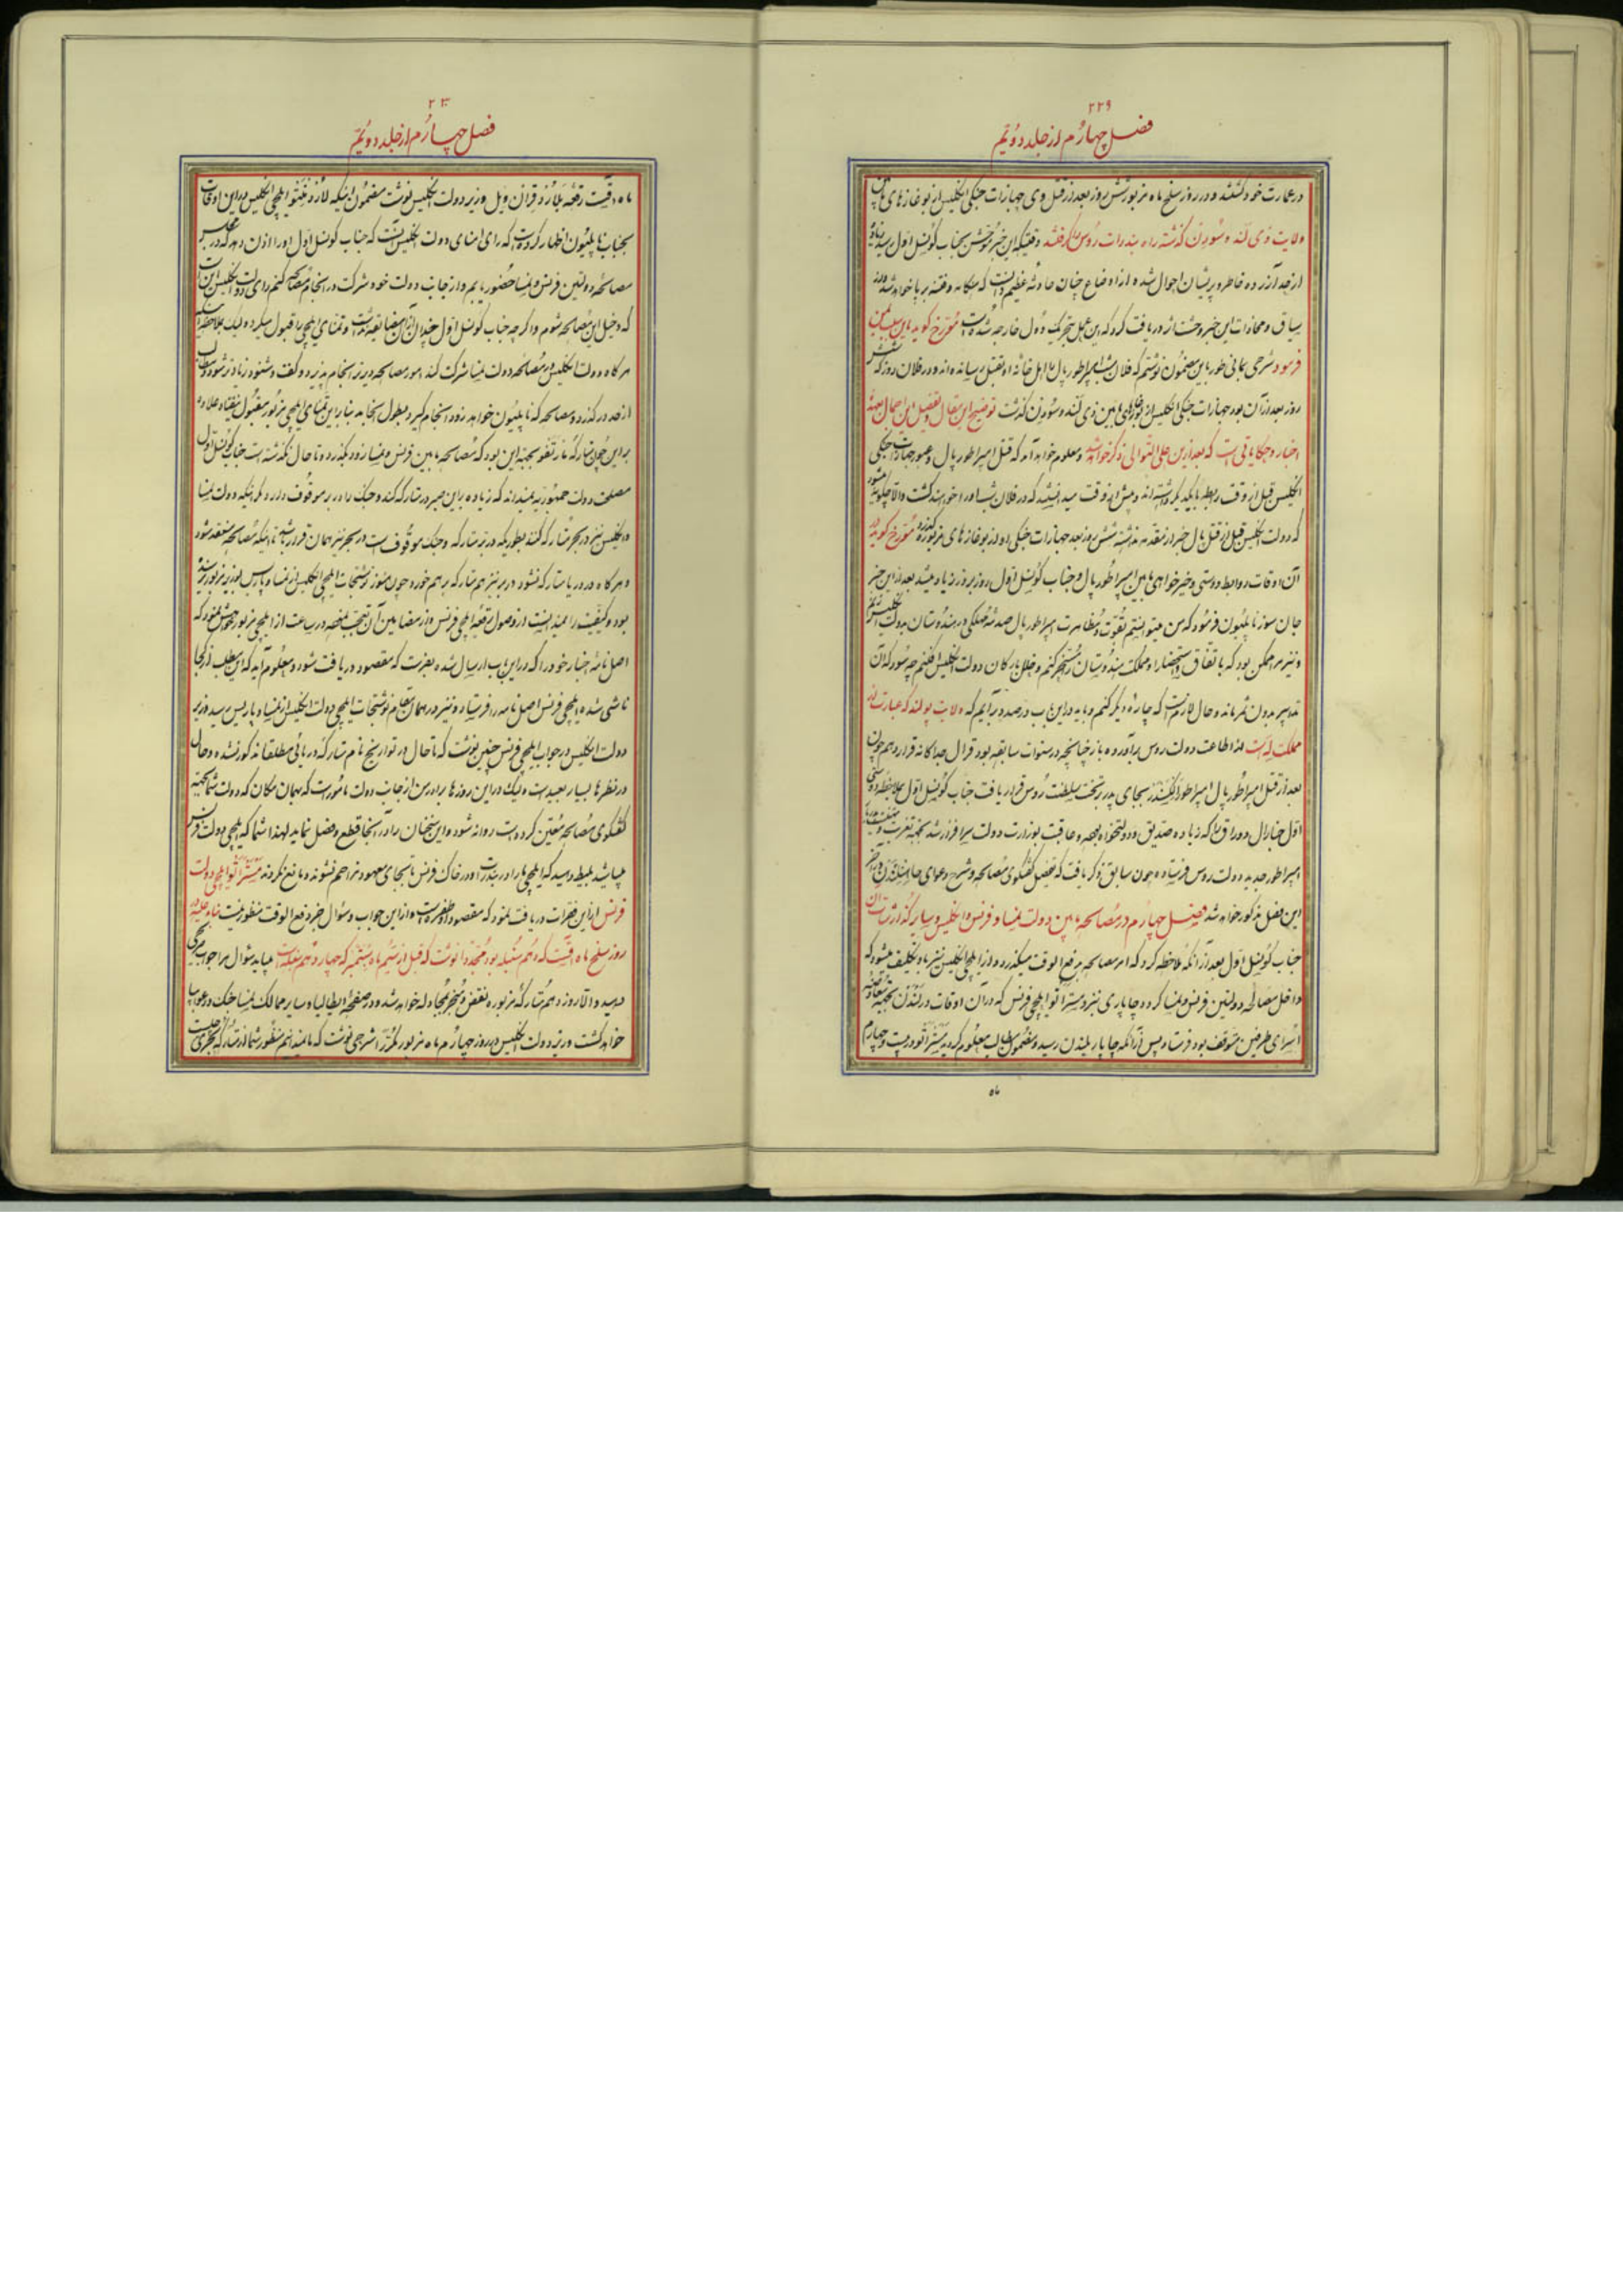 ۲۲۹
فصل چهارم از جلد دویّم
در عمارت خود کشتند و در روز سلخ ماه مزبور شش روز بعد از قتل وی جهازات جنکی انکلیس از بوغازهای مابین
ولایت زی لند و سُویدن کذشته راه بندرات روس را کرفتند وقتیکه این خبر موحش بجناب کونسل اوّل رسید زیاده
از حد آزرده خاطر و پریشان احوال شده از اوضاع چنان حادثه عظیم دانست که هنکامه و فتنه برپا خواهد شد و از
سیاق و محاذات این خبر وحشت اثر دریافت کرد که این عمل بتحریک دُوَل خارجه شده است مُورّخ کوید
فرمود شرحی بمانی طور باین مضمون نوشتم که فلان شب امپراطور پال را اهل خانه او بقتل رسانیده‌اند و در فلان روز که شش
روز بعد از آن بود جهازات جنکی انکلیس از بوغازهای مابین زی لند و سُویدن کذشت توضیح این مقال و تفصیل این اجمال
اخبار و حکایاتی است که بعد ازین علی التّوالی ذکر خواهد شد و معلوم خواهد آمد که قتل امپراطور پال و عبور جهازات جنکی
انکلیس قبل از وقت رابطه بایکدیکر داشته‌اند و پیش از وقت میدانستند که در فلان شب او را خواهند کشت والّا چکونه میشود
که دولت انکلیس قبل از قتل پال خبر از مقدّمه نداشته شش روز بعد جهازات جنکی او از بوغازهای مزبوره کذرد مُورّخ کوید در
آن اوقات روابط دوستی و خیرخواهی مابین امپراطور پال و جناب کونسل اوّل روز بروز زیاد میشد بعد از این خبر
جان سوز ناپلیُون فرمود که من میتوانستم بقُوّت و مظاهرت امپراطور پال صدمهٔ مهلکی در هندوستان بدولت انکلیس زنم
و نیز مرا ممکن بود که باتّفاق و استحضار او مملکت هندوستان را مسخّر کنم و خلل بارکان دولت انکلیس افکنم چه سُود که آن
تدابیر بدون ثمر ماند و حال لازمست که چاره دیکر کنم و باید در این باب درصدد برآیم که ولایت پولند که عبارت از
مملکت لِه است از اطاعت دولت روس برآورده باز چنانچه در سنوات سابقه بود قرال جداکانه قرار دهم چون
بعد از قتل امپراطور پال امپراطور الکسندر بجای پدر بر تخت سلطنت رُوس قرار یافت جناب کونسل اوّل بملاحظه دوستی
اوّل جنرال دوراق را که زیاده صدیق و دولتخواه بوده و عاقبت بوزارت دولت سرافراز شد بجهة تعزیت و تهنیت
امپراطور جدید بدولت روس فرستاده چون سابق ذکر یافت که تفصیل کفتکوی مصالحه و شرح دعوای
این فصل مذکور خواهد شد فصل چهارم در مُصالحه مابین دولت نمسا و فرنس و انکلیس و سایر کذارشات آن
جناب کونسل اوّل بعد از آنکه ملاحظه کرد که امر مصالحه بدفع الوقت میکذرد و از ایلچی انکلیس نیز باو تکلیف میشود که
داخل مصالحه دولتین فرنس و نمسا کردد چاپاری نزد مِستر اتو ایلچی فرنس که در آن اوقات در لندن بجهة معاوضه
اسرای طرفین متوقف بود فرستاد پس از آنکه چاپار بلندن رسید و مضمون مطالب معلوم کردید مِستر اتو در بیست و چهارم
۲۳۰
فصل چهارم از جلد دویّم
ماه اقست رقعه بلارد قِران ویل وزیر دولت انکلیس نوشت مضمون اینکه لارد مِنتو ایلچی انکلیس در این اوقات
بجناب ناپلیُون اظهار کرده است که رای امنای دولت انکلیس آنست که جناب کونسل اوّل او را اذن دهد که در مجلس
مصالحه دولتین فرنس و نمسا حضور یابم و از جانب دولت خود شرکت در انجام مصالحه کنم رای دولت انکلیس این است
که دخیل این مصالحه شوم و اکرچه جناب کونسل اوّل چندان از آن مضایقه نداشت و تمنّای ایلچی را قبول میکرد و لیک ملاحظه
هرکاه دولت انکلیس در مُصالحه دولت نمسا شرکت کند امور مصالحه دیرتر انجام پذیرد و کفت و شنود زیادتر شود و مطالب
از حد درکذرد و مصالحه که ناپلیُون خواهد زود انجام کیرد بطول انجامد بنابراین تمنّای ایلچی مزبور مقبول نیفتاد علاوه
براین چون متارکه مارنقو بجهة این بود که مصالحه مابین فرنس و نمسا زود بکذرد و تا حال نکذشته است جناب کونسل اوّل
مصلحت دولت جمهوریه نمیداند که زیاده براین صبر در متارکه کند و جنک را در بر موقوف دارد مکر اینکه دولت نمسا
و انکلیس نیز در بحر متارکه کنند بطوریکه در بر متارکه و جنک موقوف است در بحر نیز همان قرار باشد تا اینکه مصالحه منعقد شود
و هرکاه در دریا متارکه نشود در بر نیز هم متارکه برهم خورد چون هنوز نوشتجات ایلچی انکلیس از نمسا و پاریس بوزیر مزبور نرسیده
بود و کیفیّت را نمیدانست از وصول رقعه ایلچی فرنس و از مضامین آن تعجّب نموده در ساعت از ایلچی مزبور خواهش نمود که
اصل نامه اخبار خود را که در این باب ارسال شده بفرست که مقصود دریافت شود و معلوم آید که این مطلب از کجا
ناشی شده ایلچی فرنس اصل نامه را فرستاد و نیز در همان مقام نوشتجات ایلچی دولت انکلیس از نمسا و پاریس رسید وزیر
دولت انکلیس در جواب ایلچی فرنس چنین نوشت که تا حال در تواریخ نام متارکه دریائی مطلقا مذکور نشده و حال
در نظرها بسیار بعید است و لیک در این روزها برادر من از جانب دولت مامور است که بهمان مکان که دولت شما بجهة
کفتکوی مُصالحه مُعیّن کرده است روانه شود و این سخنان را در آنجا قطع و فصل نماید لهذا شما که ایلچی دولت فرنس
میباشید بلیط دهید که ایلچی ما را در بندرات و در خاک فرنس تا بجای معهود مزاحم نشوند و مانع نکردند مِستر اتو ایلچی دولت
فرنس از این فقرات دریافت نمود که مقصود طفره است و از این جواب و سؤال جز دفع الوقت منظور نیست
روز سلخ ماه اقست که دهم سنبله بود مُجدّدا نوشت که قبل از سیّم ماه سپتمبر که چهاردهم سنبله است میباید سؤال مرا جواب
دهید والّا روز دهم مُتارکه مزبوره نقض و منجر بمُجادله خواهد شد و در صفحه ایطالیا و سایر ممالک نمسا جنک و دعوا برپا
خواهد کشت وزیر دولت انکلیس در روز چهارم ماه مزبور مکرّر شرحی نوشت که ما نمیدانیم منظور شما از متارکه بحری چیست